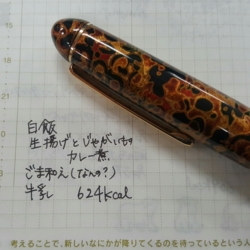 15
白飯
生揚げとじゃがいもの
カレー煮
ごま和え(なんの?)
牛乳 624kcal
考えることで、新しいなにかが降りてくるのを待っているという人